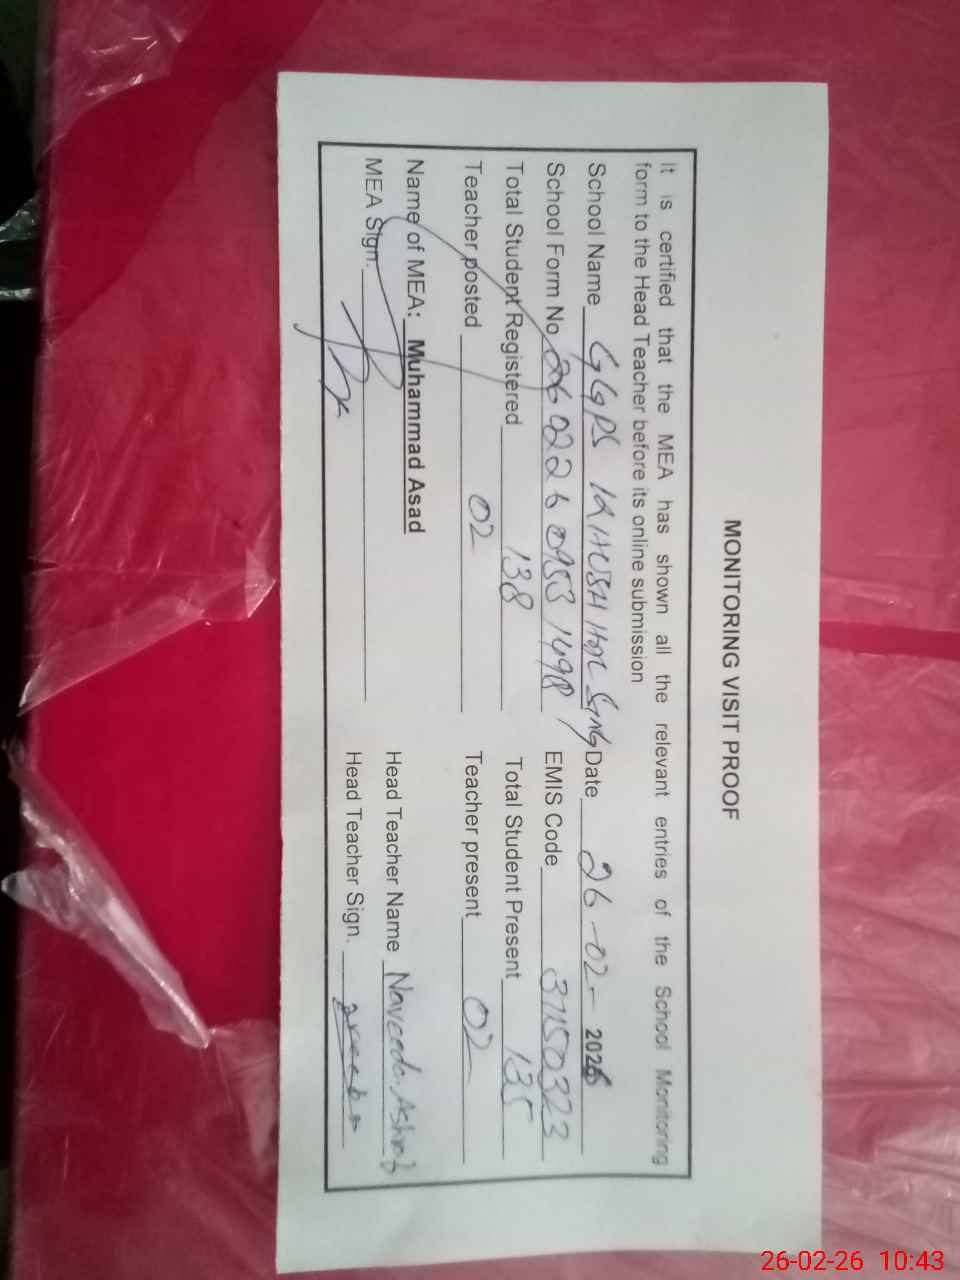 MONITORING VISIT PROOF
It is certified that the MEA has shown all the relevant entries of the School Monitoring
form to the Head Teacher before its online submission
School Name GGPS Date 26-02-2026
School Form No. EMIS Code 37150323
Total Student Registered 138 Total Student Present 135
Teacher posted 02 Teacher present 02
Name of MEA: Muhammad Asad Head Teacher Name Naveeda Ashraf
MEA Sign. Head Teacher Sign.
26-02-26 10:43